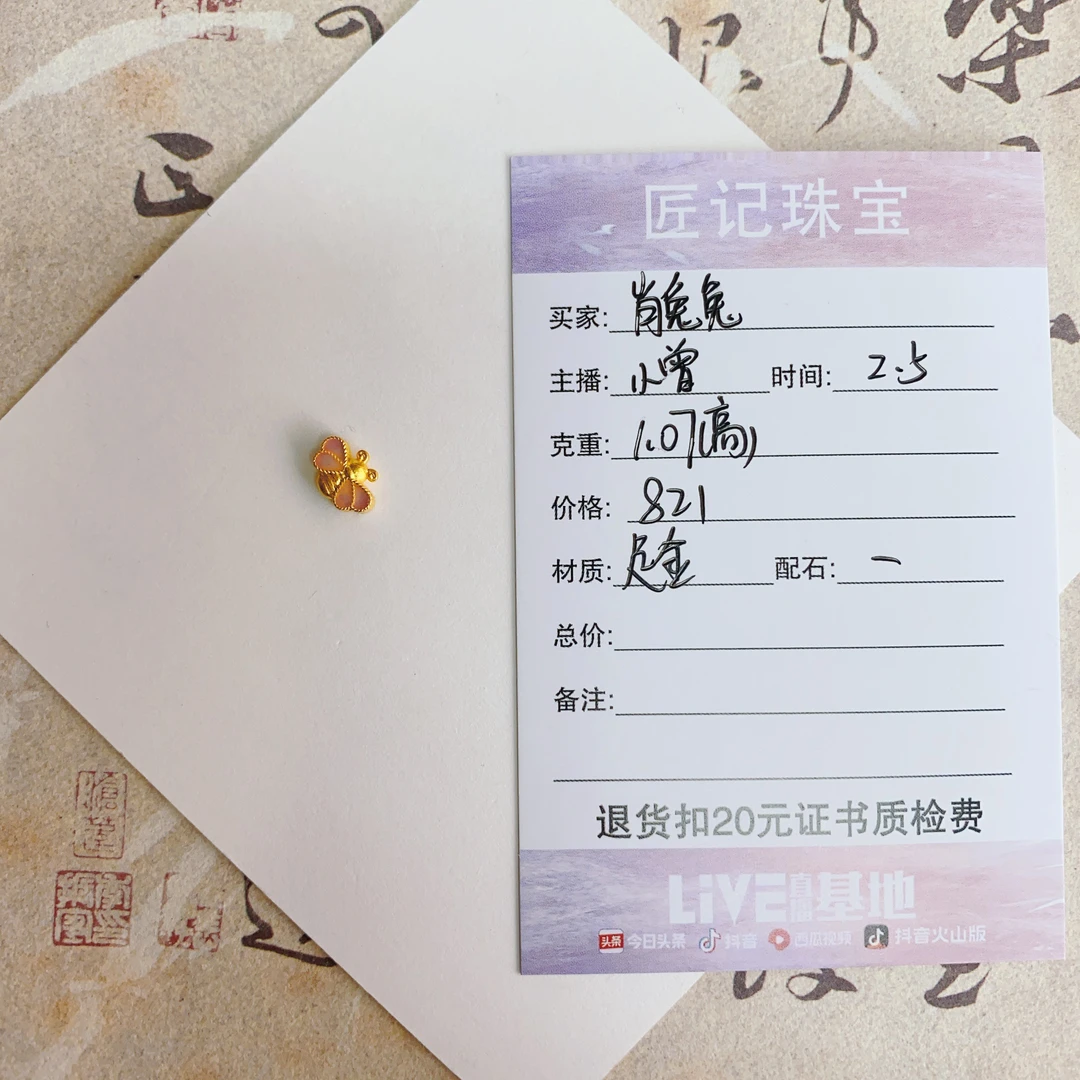 匠记珠宝
买家: 肖兔兔
主播: 小曾 时间: 2.5
克重: 1.07(高)
价格: 821
材质: 足金 配石: 一
总价:
备注:
退货扣20元证书质检费
LiVE直播基地
头条 今日头条 抖音 西瓜视频 抖音火山版